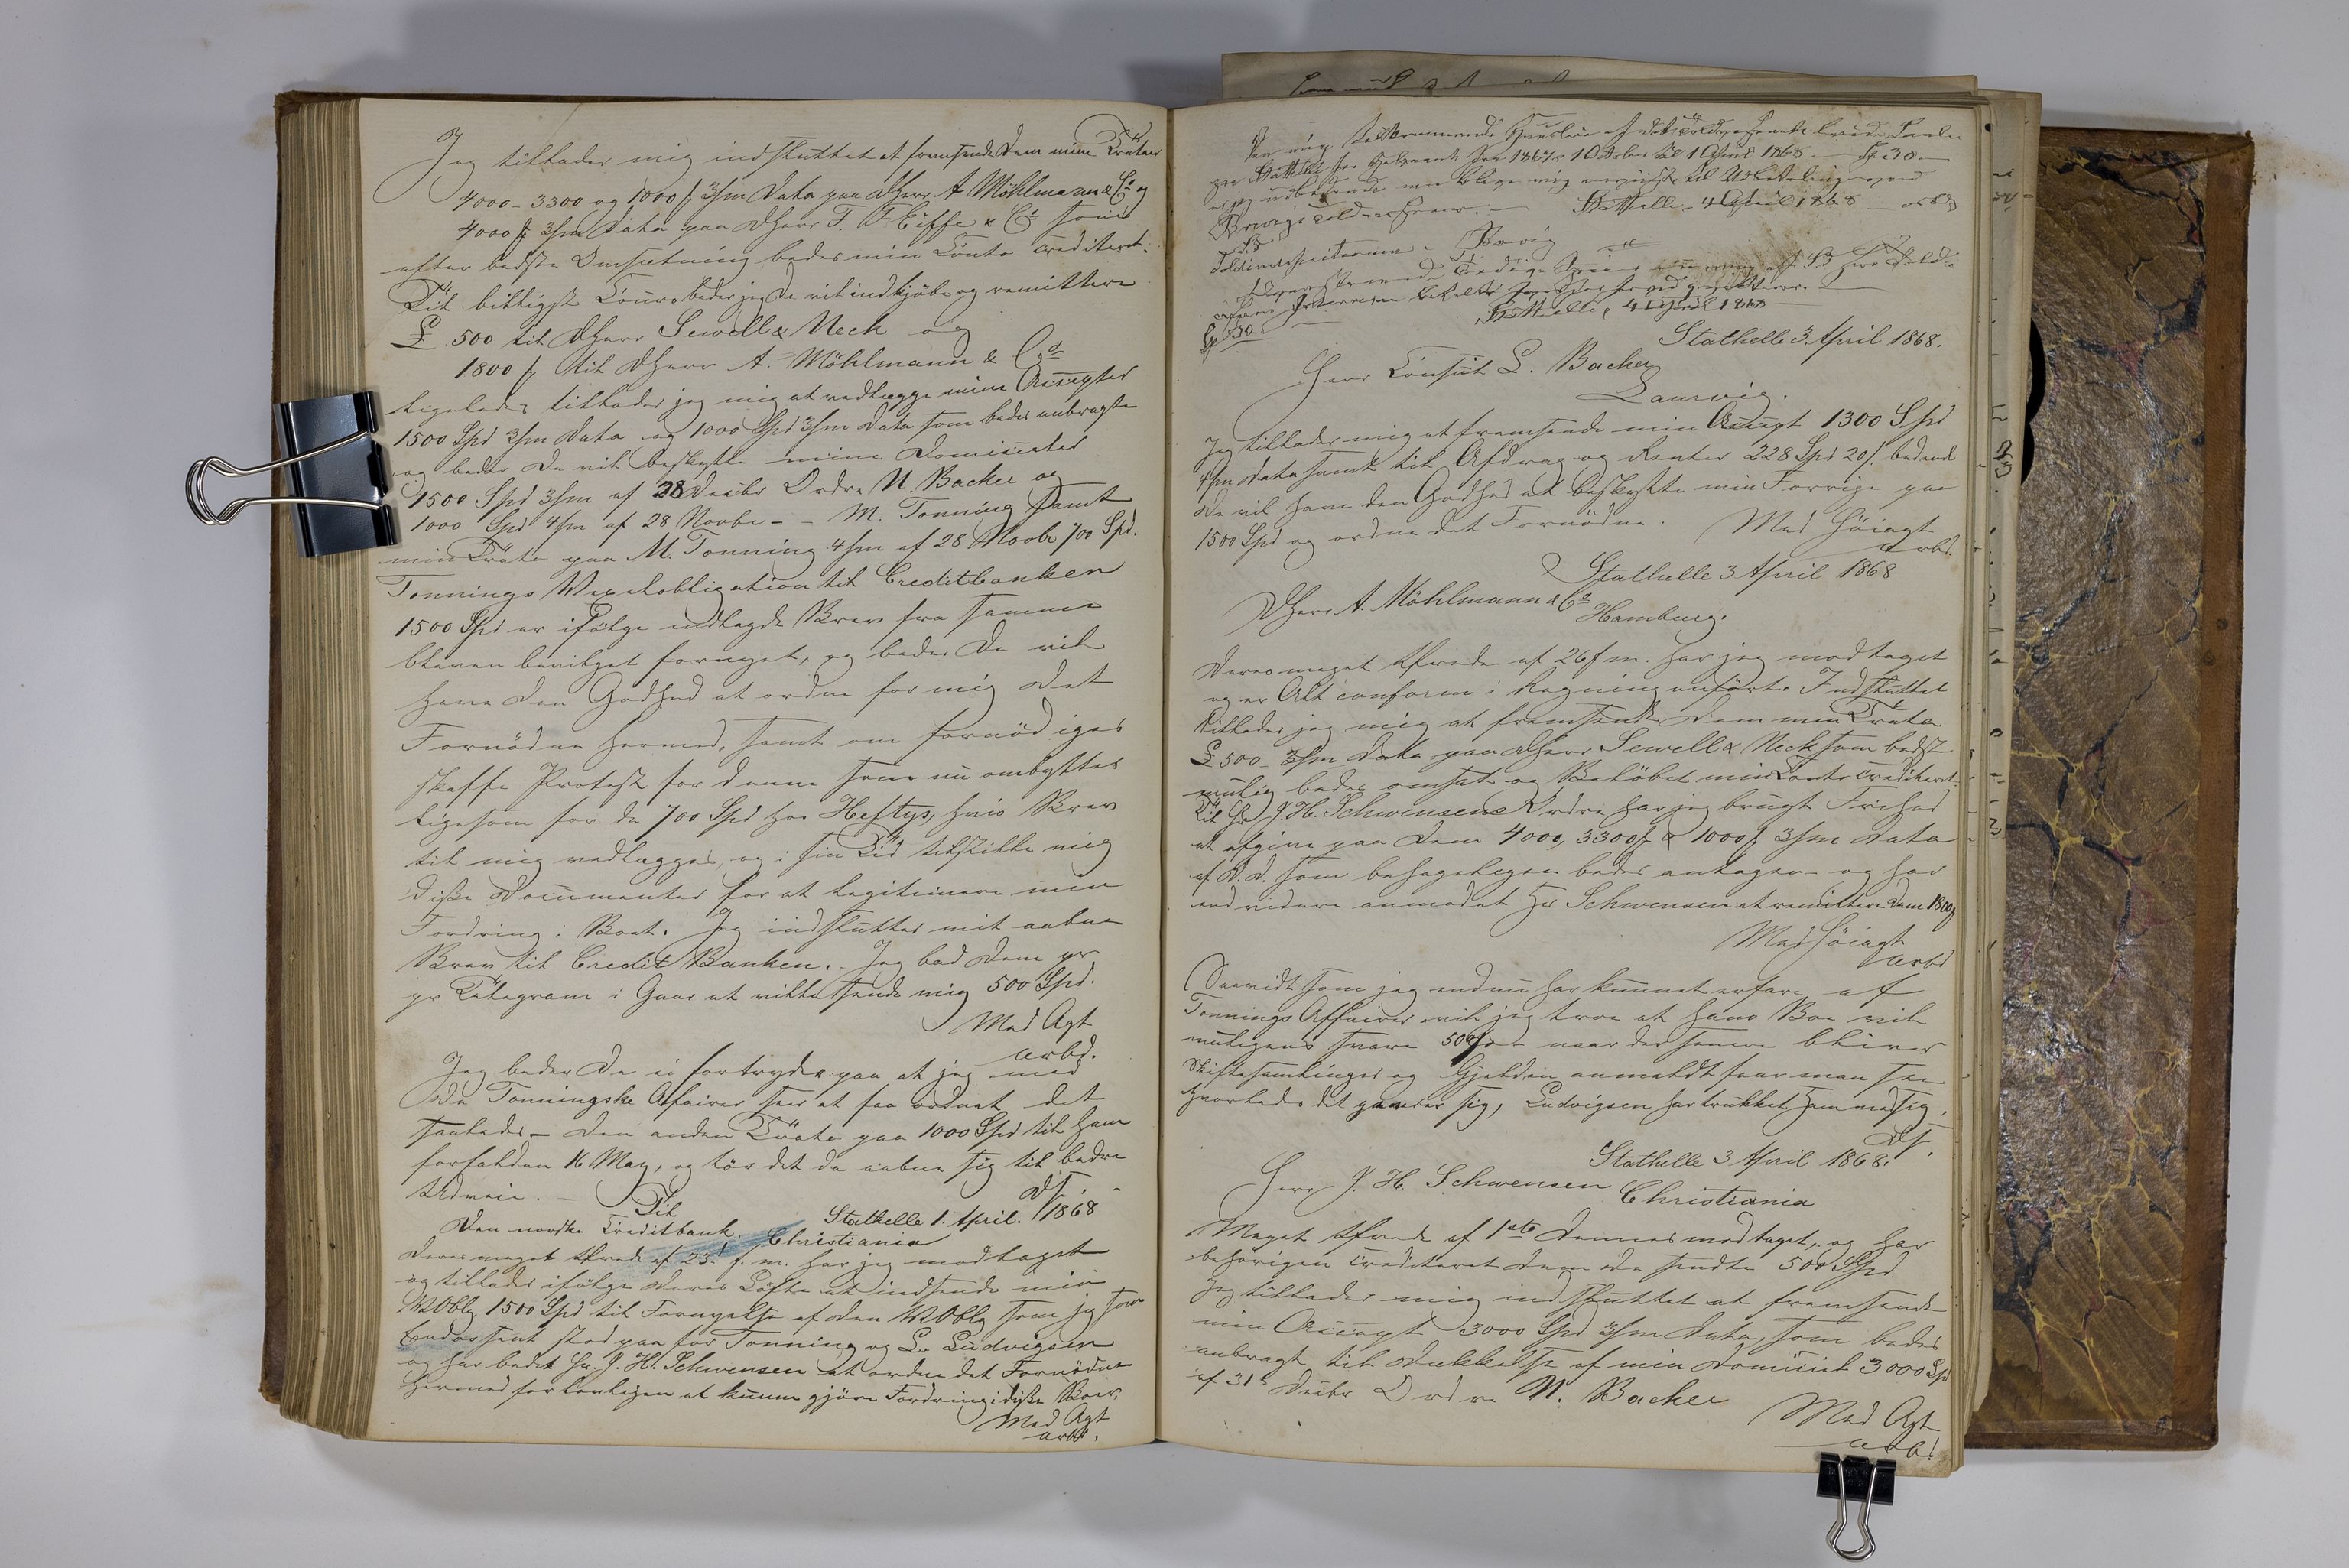 Jeg tillader mig indsluttet at fremsende Dem mine Tratter
4000 - 3300 og 1000 f 3/m Data paa DHerr A Möhlmann & Co og
4000 f 3/m Data paa DHerr F. Eiffe & Co som
efter bedste Omsætning bedes min Conto crediteret.
Til billigst Cours beder jeg De vil indkjøbe og remittere
£ 500 til DHerr Sewell & Neck og
1800 f til DHerr A. Möhlmann & Co
Ligeledes tillader jeg mig at vedlægge mine Accepter
1500 Spd 3/m Data og 1000 Spd 3/m Data som bedes anbragte
og beder De vil beskytte mine Domiciler
1500 Spd 3/m af 28 Decbr Ordre N. Backer og
1000 Spd 4/m af 28 Novbr - - M. Tonning samt
min Tratte paa M. Tonning 4/m af 28 Novbr 700 Spd.
Tonnings Vexelobligation til Creditbanken
1500 Spd er ifølge indlagde Brev fra samme
bleven bevilget fornyet, og beder De vil
have den Godhed at ordne for mig det
Fornødne hermed, samt om fornødiges
skaffe Protest for denne som nu ombyttes
ligesom for de 700 Spd hos Heftys, hvis Brev
til mig vedlægges, og i sin Tid tilstille mig
disse Documenter for at legitimere min
Fordring i Boet. Jeg indslutter mit aabne
Brev til Credit Banken. Jeg bad Dem pr
pr Telegram i Gaar at ville sende mig 500 Spd.
Med Agt
arbd.
Jeg beder De ei fortryder paa at jeg med
de Tonningske Afairer seer at faa ordnet det
saaledes - Den anden Tratte paa 1000 Spd til ham
forfalden 16 May, og tør det da aabne sig til bedre
Udveie. - DS.
Til
Stathelle 1. April. 1868
Den norske Creditbank. Christiania
Deres meget ærede af 23d f. m. har jeg modtaget
og tillader ifølge Deres Løfte at indsende min
VOblg 1500 Spd til Fornyelse af den VOblg som jeg som
Endossent stod paa for Tonning og L. Ludvigsen
og har bedet Hr. J. H. Schwensen at ordne det Fornødne
hermed for lovligen at kunne gjøre Fordring i disse Boer.
Med Agt
arbd.
paa Stathelle for Halvaaret fra 1867 1 Octobr til 1 April 1868 - Sp 30 -
Brevigs Toldkammer. - Stathelle, 4 April 1868 - arbd
Toldinspecteuren i Brevig
Sp 30
Stathelle, 4 April 1868
Stathelle 3 April 1868.
Herr Consul L. Backer
Laurvig.
Jeg tillader mig at fremsende min Accept 1300 Spd
4/m Data samt til Afdrag og Renter 228 Spd 20 /. bedende
De vil have den Godhed at beskytte min Forrige paa
1500 Spd og ordne det Fornødne. Med Høiagt
arbd.
Stathelle 3 April 1868
DHerr A. Möhlmann & Co
Hamburg.
Deres meget ærede af 26 f. m. har jeg modtaget
og er Alt conform i Regning anført. Indsluttet
tillader jeg mig at fremsende Dem min Tratte
£ 500 - 3/m Data paa DHerr Sewell & Neck som bedst
mulig bedes omsat og Beløbet min Conto crediteret.
Til Hr J. H. Schwensens Ordre har jeg brugt Frihed
at afgive paa Dem 4000, 3300 f & 1000 f 3/m Data
af D. D. som behageligen bedes antagen - og har
end videre anmodet Hr Schwensen at remittere Dem 1800 f
Med Høiagt
arbd
Saavidt som jeg endnu har kunnet erfare af
Tonnings Affairer vil jeg troe at hans Boe vil
muligens svare 50% - naar der senere bliver
Skiftesamlinger og Gjælden anmeldt faar man see
hvorledes det stiller sig, Ludvigsen har trukket ham med sig.
DS.
Stathelle 3 April 1868.
Herr J. H. Schwensen
Christiania
Meget ærede af 1ste dennes modtaget, og har
behørigen crediteret Dem de sendte 500 Spd.
Jeg tillader mig indsluttet at fremsende
min Accept 3000 Spd 3/m Data, som bedes
anbragt til Dækkelse af min Domicil 3000 Spd
af 31s Decbr Ordre N. Backer
Med Agt
arbd